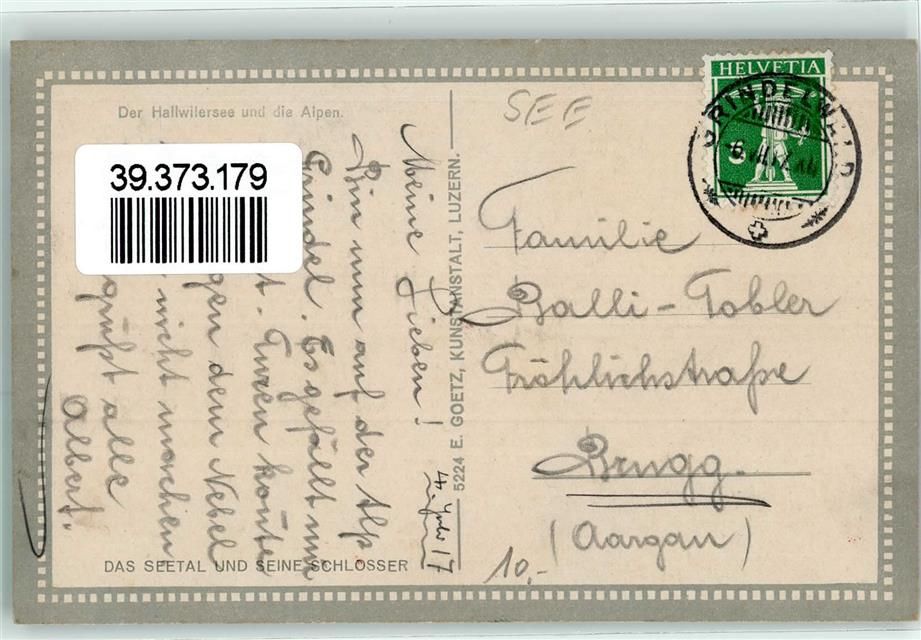 Der Hallwilersee und die Alpen.
39.373.179
SEE
HELVETIA
GRINDELWALD
Meine Lieben!
Bin nun auf der Alp
Grindel. Es gefällt mir
Turen konnte
gen dem Nebel
nicht machen
grüßt alle
Albert.
17
5224 E. GOETZ, KUNSTANSTALT, LUZERN.
Familie
Balli-Tobler
Fröhlichstraße
Brugg.
(Aargau)
10.-
DAS SEETAL UND SEINE SCHLÖSSER